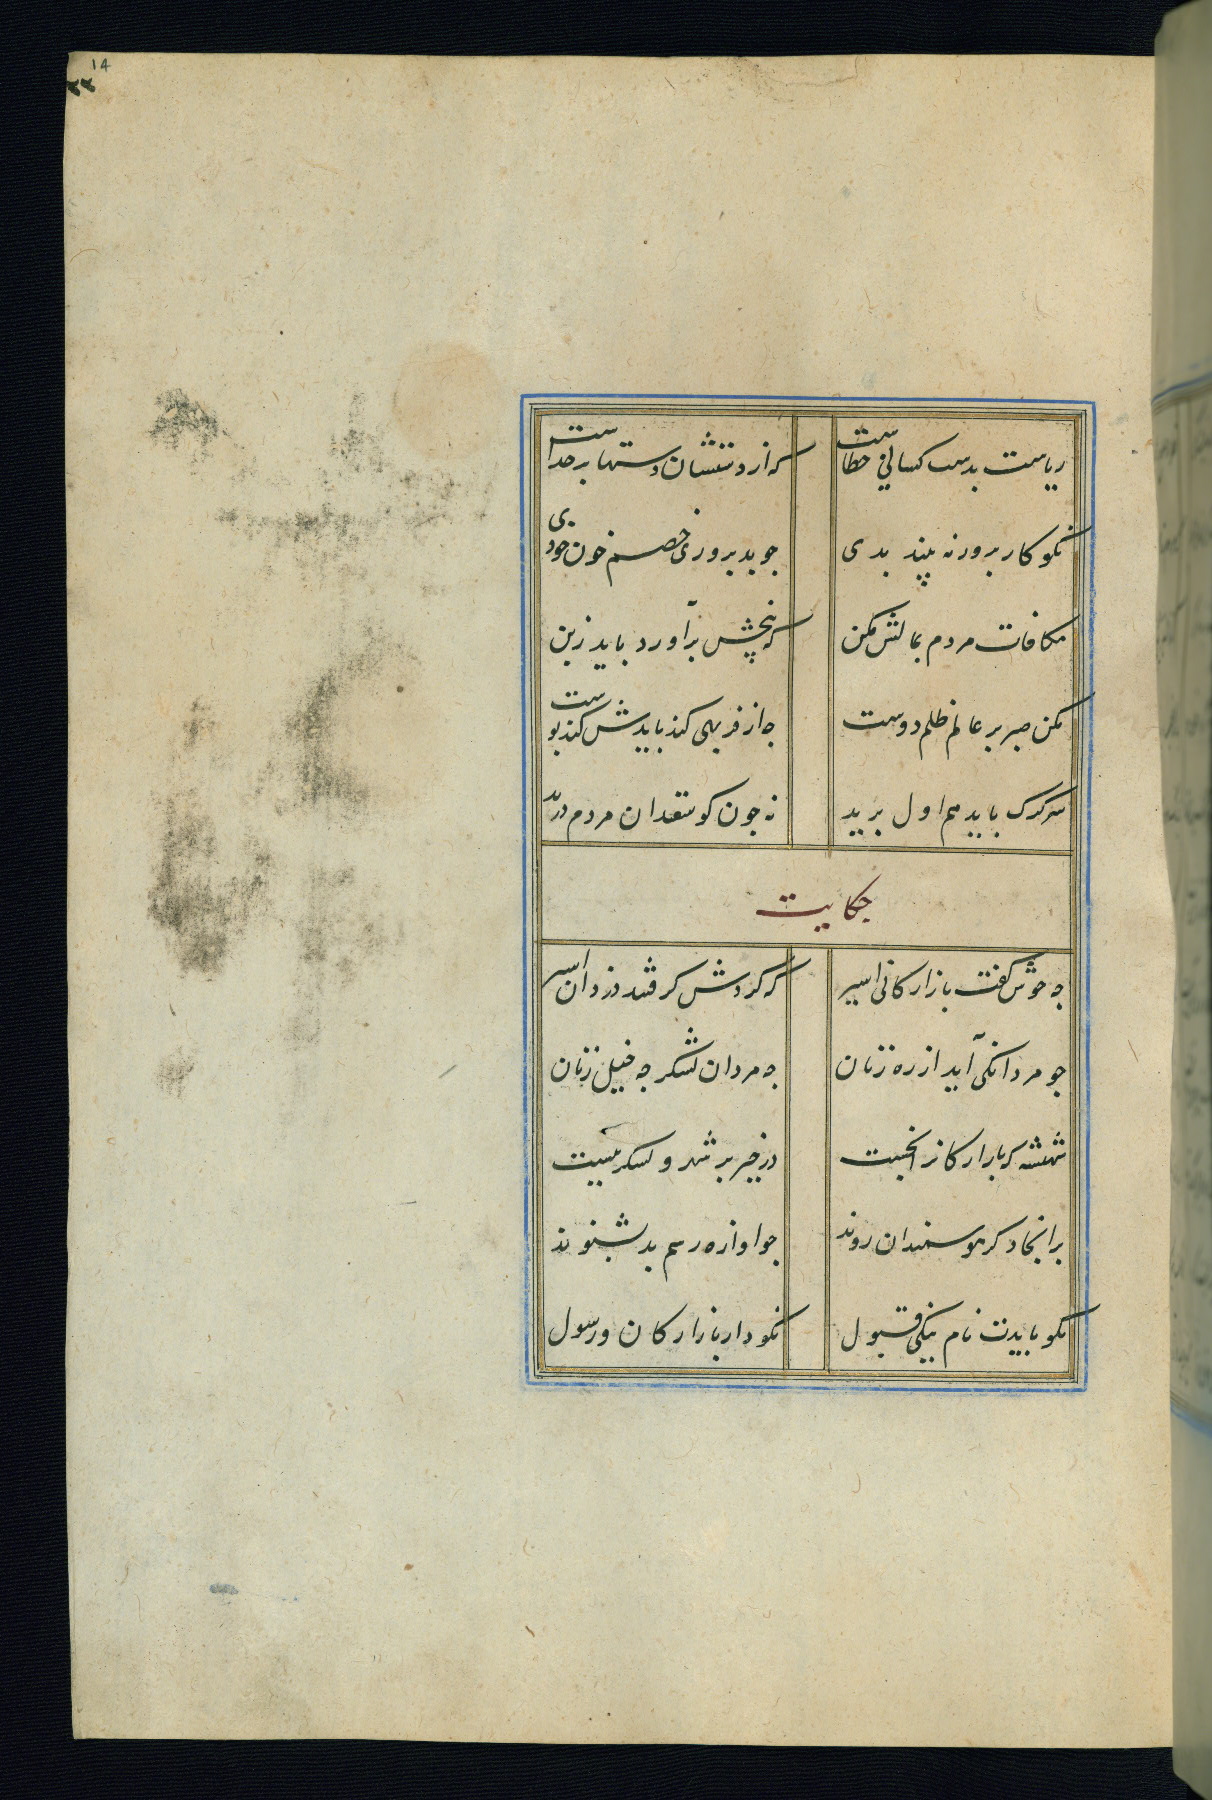 14
ریاست بدست کسانی خطاست که از دستشان دستها بر خداست
نکو کار برور نه بیند بدی جو بد بروری خصم خون خودی
مکافات مردم بمالش مکن که بیخش برآورد باید ز بن
مکن صبر بر عالم ظلم دوست جه از فربهی کند بایدش کند بوست
سر کرک باید هم اول برید نه جون کوسفندان مردم درید
حکایت
جه خوش کفت بازارکانی اسیر که کردش کرفتند دزدان اسیر
جو مردانکی آید از ره زنان جه مردان لشکر جه خیل زنان
شهنشه که بازارکانرا بخست در خیر بر شهر و لشکر ببست
بر انجا دکر هوشمندان روند جو اوازه رسم بد بشنوند
نکو بایدت نام نیکی قبول نکو دار بازارکان و رسول